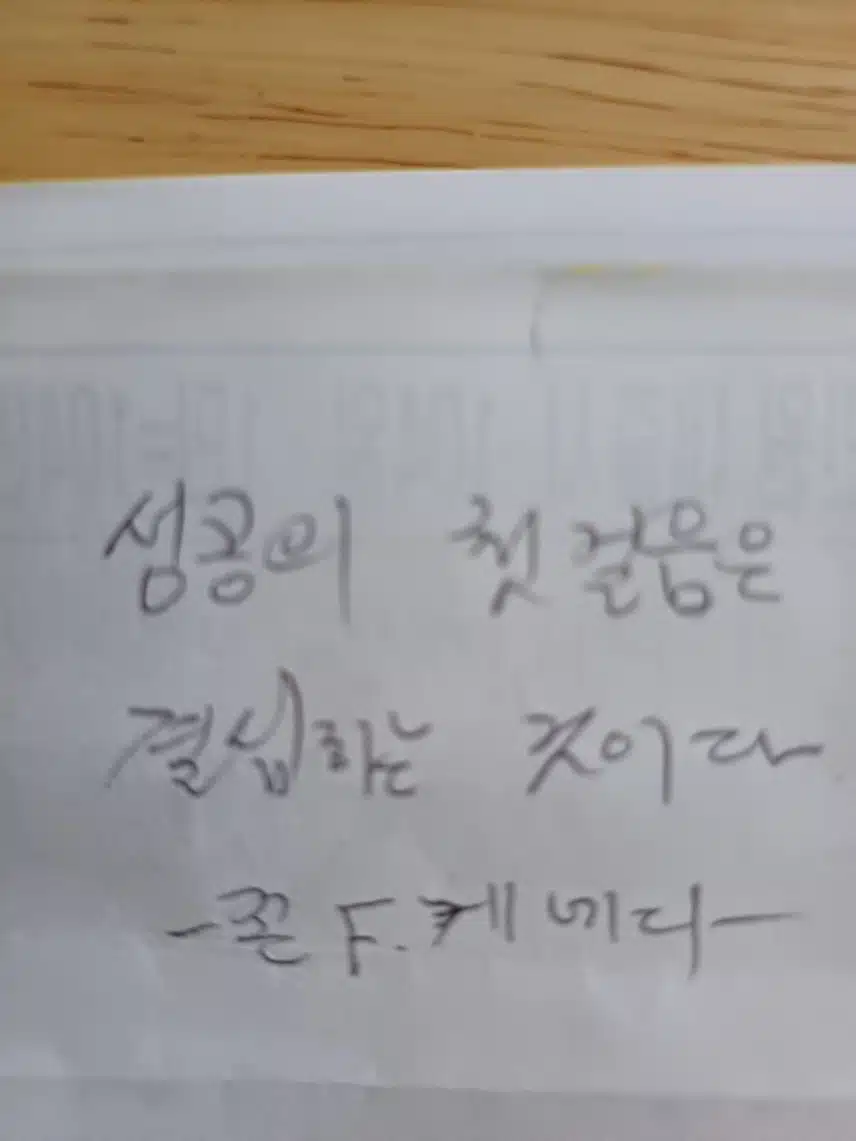 성공의 첫 걸음은
결심하는 것이다
-죤 F. 케네디-